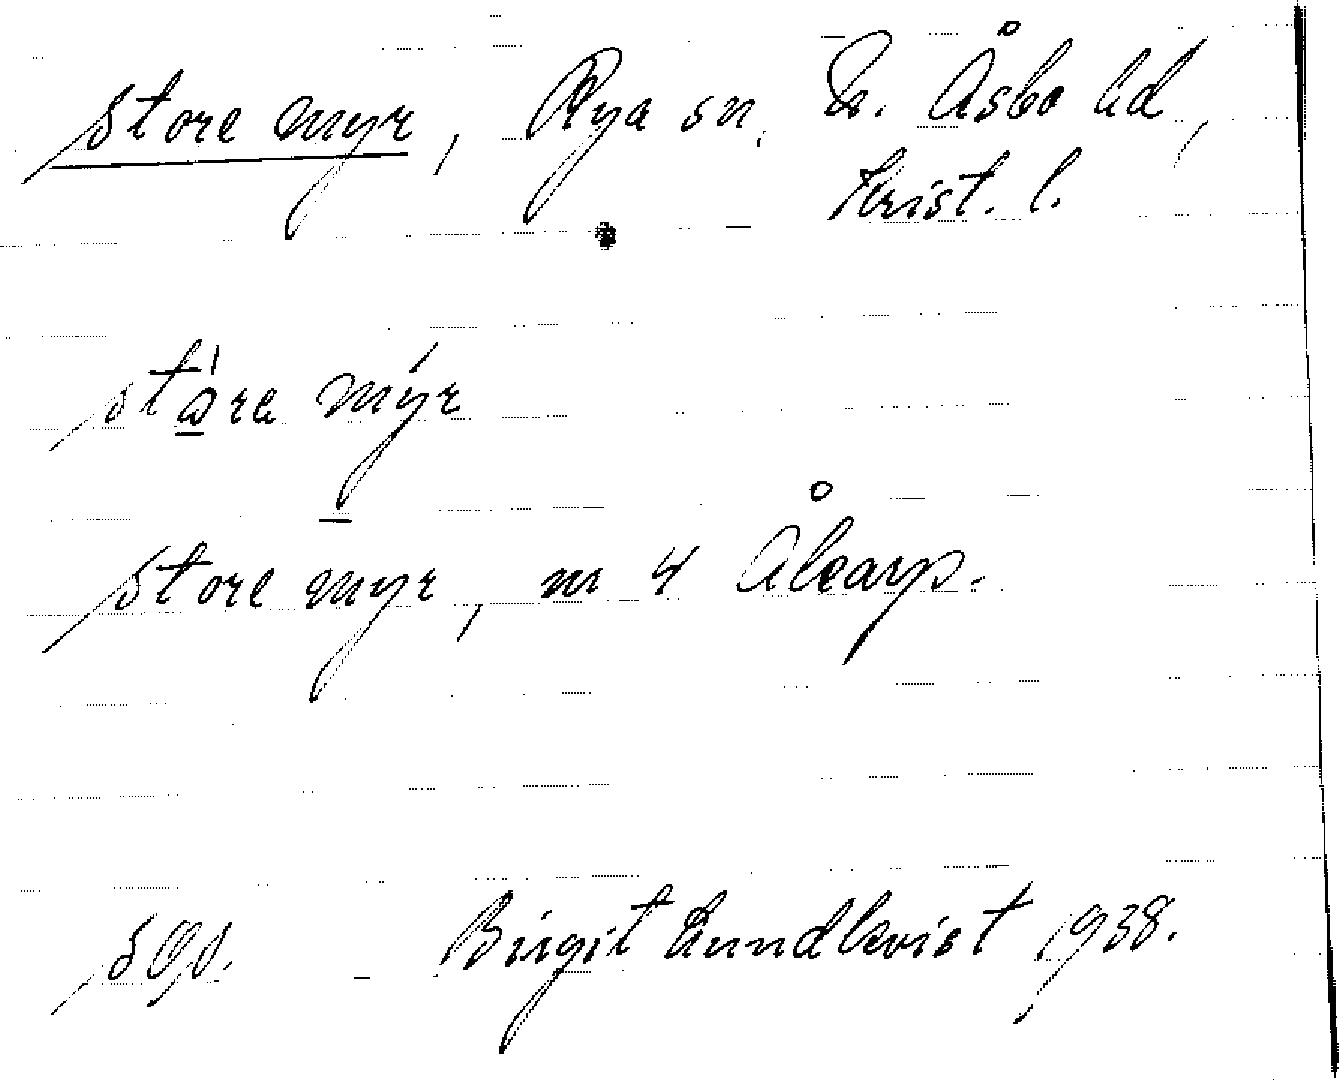 store myr, Rya sn, N. Åsbo hd,
Krist. l.
mýr
store myr, nr 4 Åkarp.
Birgit Lundkvist 1938.